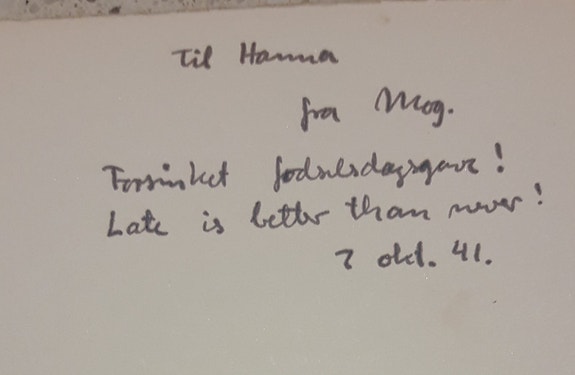 Til Hanna
fra Mog.
Forsinket fødselsdagsgave!
Late is better than never!
7 okt. 41.